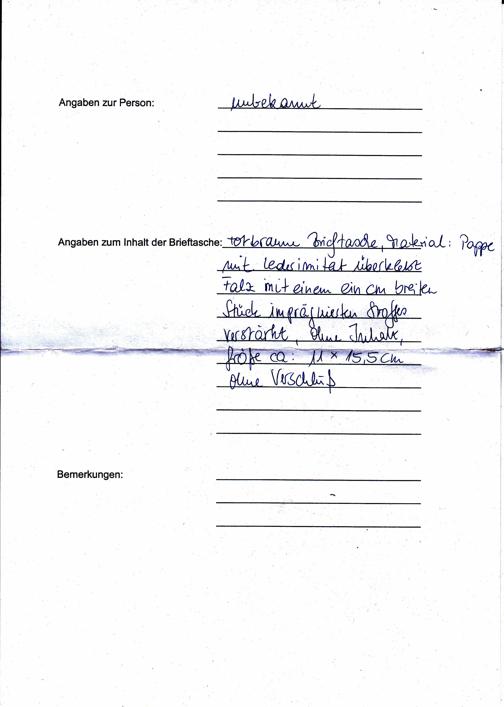 Angaben zur Person: unbekannt
Angaben zum Inhalt der Brieftasche: rotbraune Brieftasche, Material: Pappe
mit Lederimitat überklebt
Falz mit einem ein cm breiten
Stück imprägnierten Stoffes
verstärkt, ohne Inhalt,
Größe ca: 11 x 15,5 cm
ohne Verschluß
Bemerkungen: